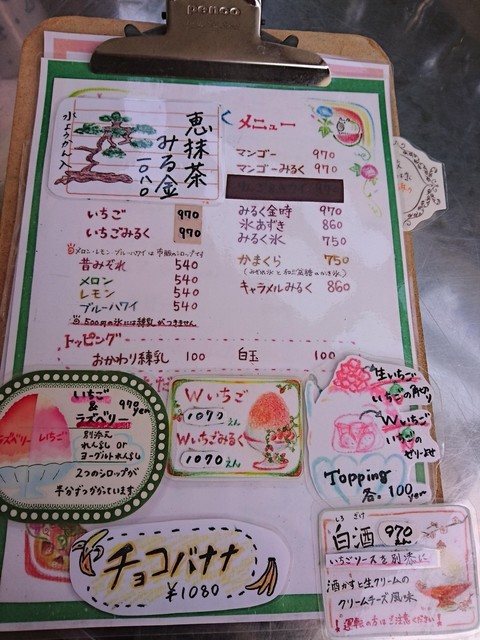 penco
水ようかん入
恵抹茶
みる金
一〇八〇
メニュー
マンゴー 970
マンゴーみるく 970
いちご 970
いちごみるく 970
みるく金時 970
氷あずき 860
みるく氷 750
メロン・レモン・ブルーハワイは市販のシロップです
昔みぞれ 540
メロン 540
レモン 540
ブルーハワイ 540
かまくら 750
キャラメルみるく 860
500円の氷には練乳がつきません
トッピング
おかわり練乳 100
白玉 100
いちご
&
ラズベリー
970yen
ラズベリー いちご
別添え
れんぷし or
ヨーグルトれんし
2つのシロップが
半分ずつかかっています
Wいちご
1070えん
Wいちごみるく
1070えん
生いちご
いちごの角切り
Wいちご
いちごの
ゼリーよせ
Topping
各100yen
チョコバナナ
¥1080
しろ ざけ
白酒 970
いちごソースを別添えに
酒かすと生クリームの
クリームチーズ風味
!運転の方はご注意ください!